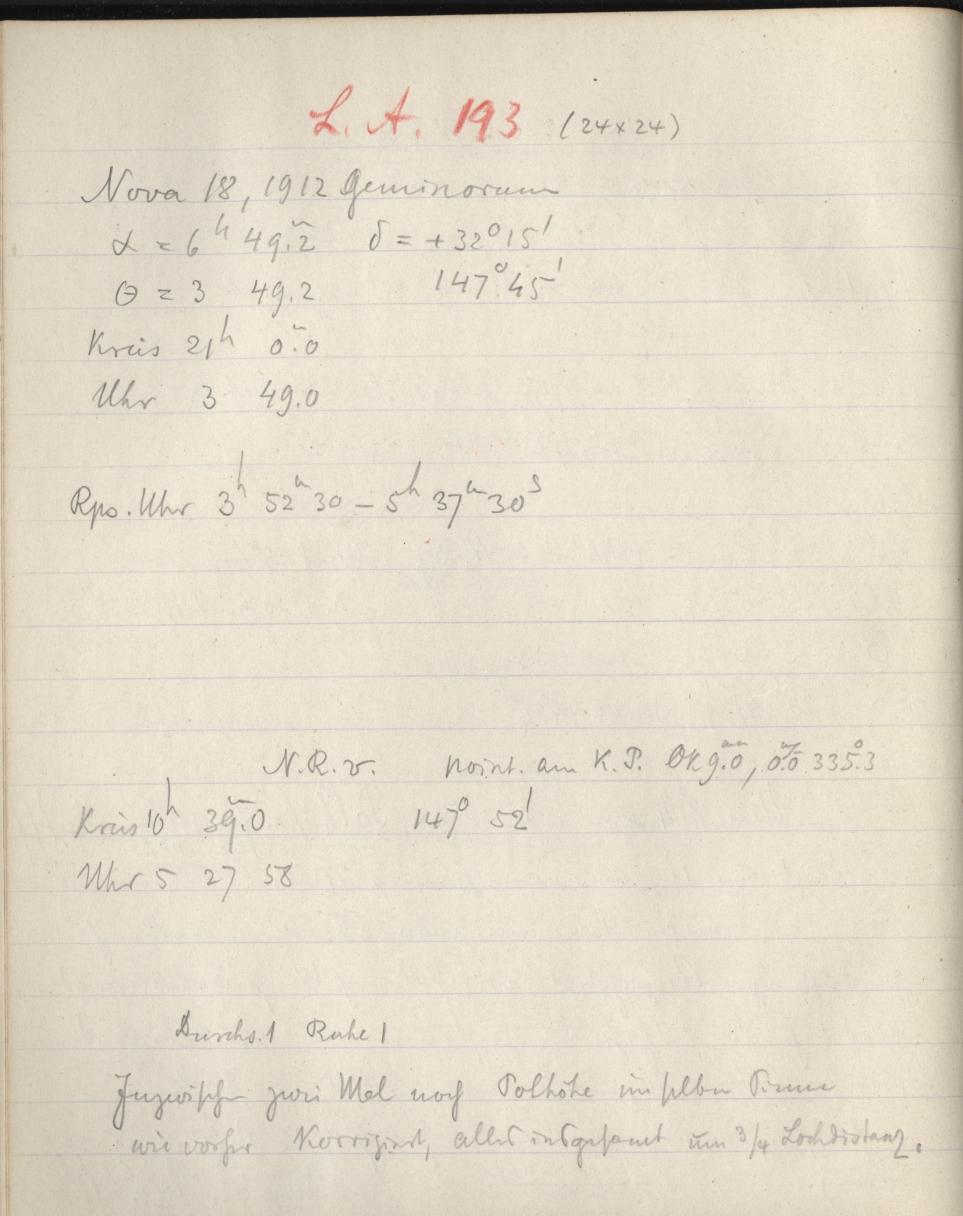 L. A. 193 (24x24)
Nova 18, 1912 Geminorum
α = 6ʰ 49ᵐ.2 δ = +32° 15'
θ = 3 49.2 147° 45'
Kreis 21ʰ 0ᵐ.0
Uhr 3 49.0
Rps. Uhr 3ʰ 52ᵐ 30 – 5ʰ 37ᵐ 30ˢ
N.R.v. point. am K.P. Ok 9ᵐᵐ.0, 335°.3
Kreis 10ʰ 39ᵐ.0 147° 52'
Uhr 5 27 58
Durchs. 1 Ruhe 1
Inzwischen zwei Mal noch Polhöhe im selben Sinne
wie vorher korrigiert, alles insgesamt um 3/4 Lochdistanz.